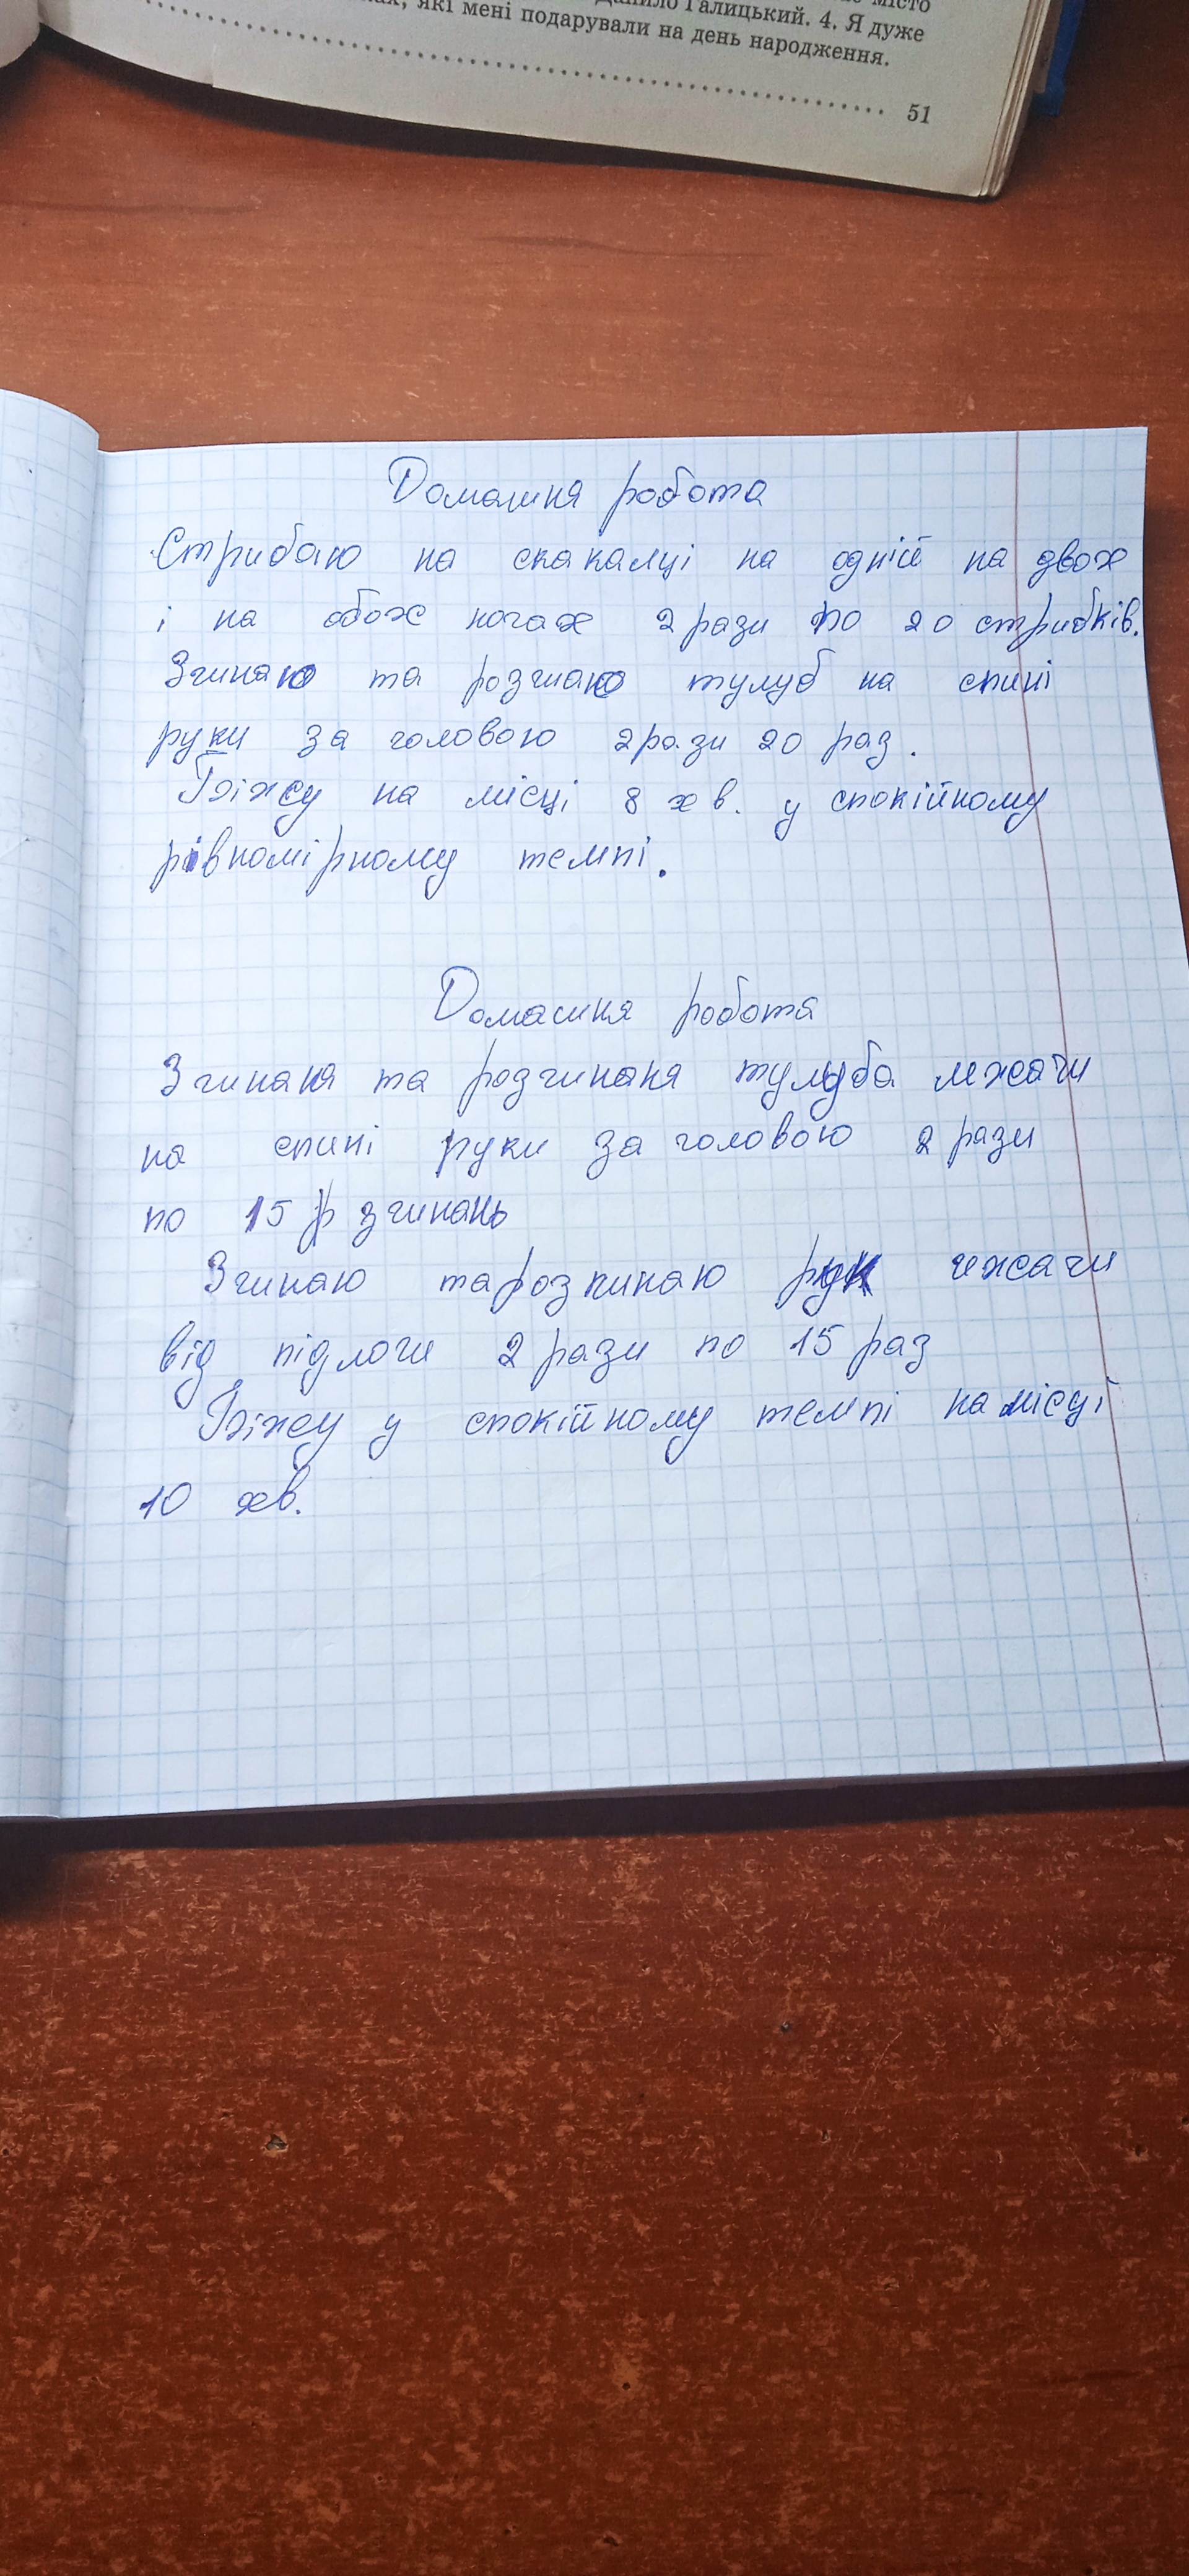 місто
Данило Галицький. 4. Я дуже
які мені подарували на день народження.
51
Домашня робота
Стрибаю на скакалці на одній на двох
і на обох ногах 2 рази по 20 стрибків.
Згинаю та розгиаю тулуб на спині
руки за головою 2 рази 20 раз.
Біжу на місці 8 хв. у спокійному
рівномірному темпі.
Домашня робота
Згинаня та розгинаня тулуба лжачи
на спині руки за головою 2 рази
по 15 р згинань
Згинаю та розгинаю рук лжачи
від підлоги 2 рази по 15 раз
Біжу у спокійному темпі на місці
10 хв.